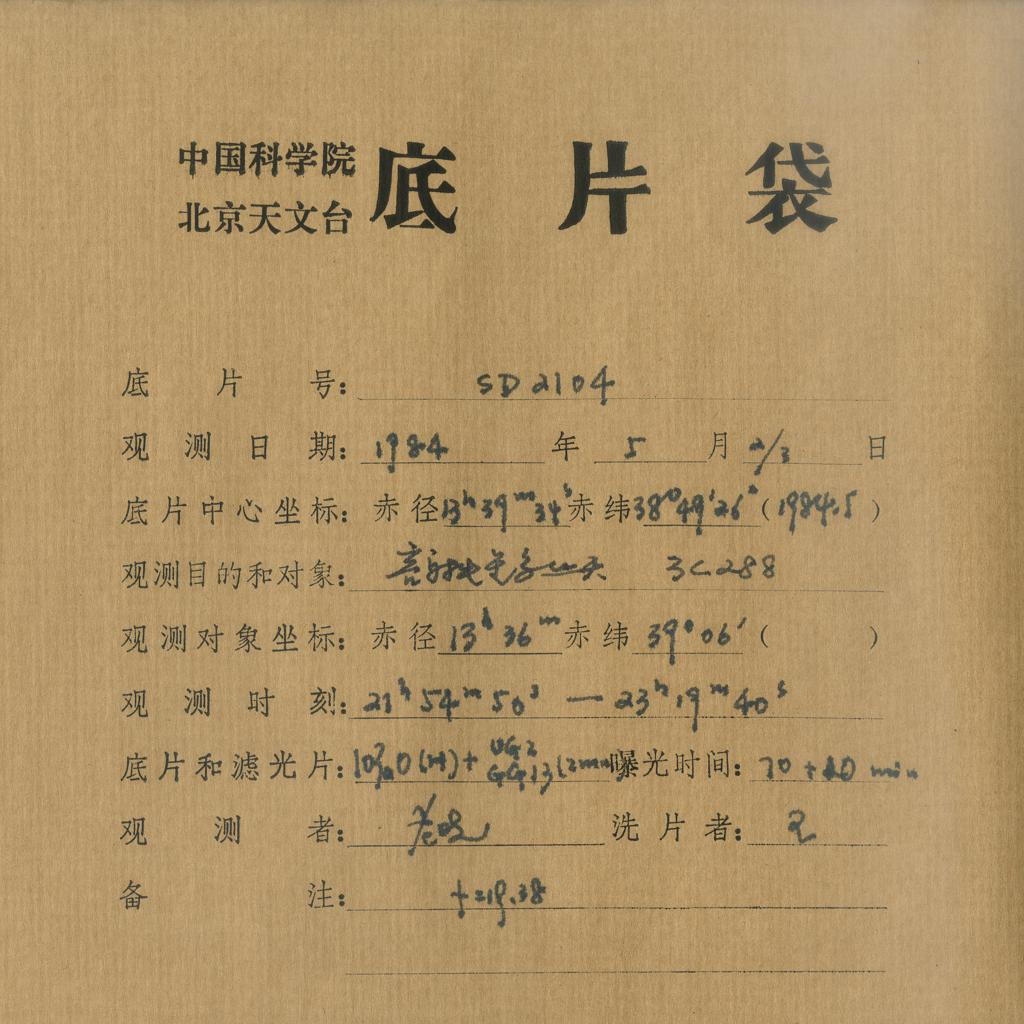 中国科学院
北京天文台
底片袋
底片号: SD 2104
观测日期: 1984 年 5 月 2/3 日
底片中心坐标: 赤径 13ʰ 39ᵐ 34ˢ 赤纬 38° 49′ 26″ (1984.5)
观测目的和对象: 3C288
观测对象坐标: 赤径 13ʰ 36ᵐ 赤纬 39° 06′ ( )
观测时刻: 21ʰ 54ᵐ 50ˢ — 23ʰ 19ᵐ 40ˢ
底片和滤光片: UG2 GG13 曝光时间: min
观测者: 洗片者:
备注: +219.38